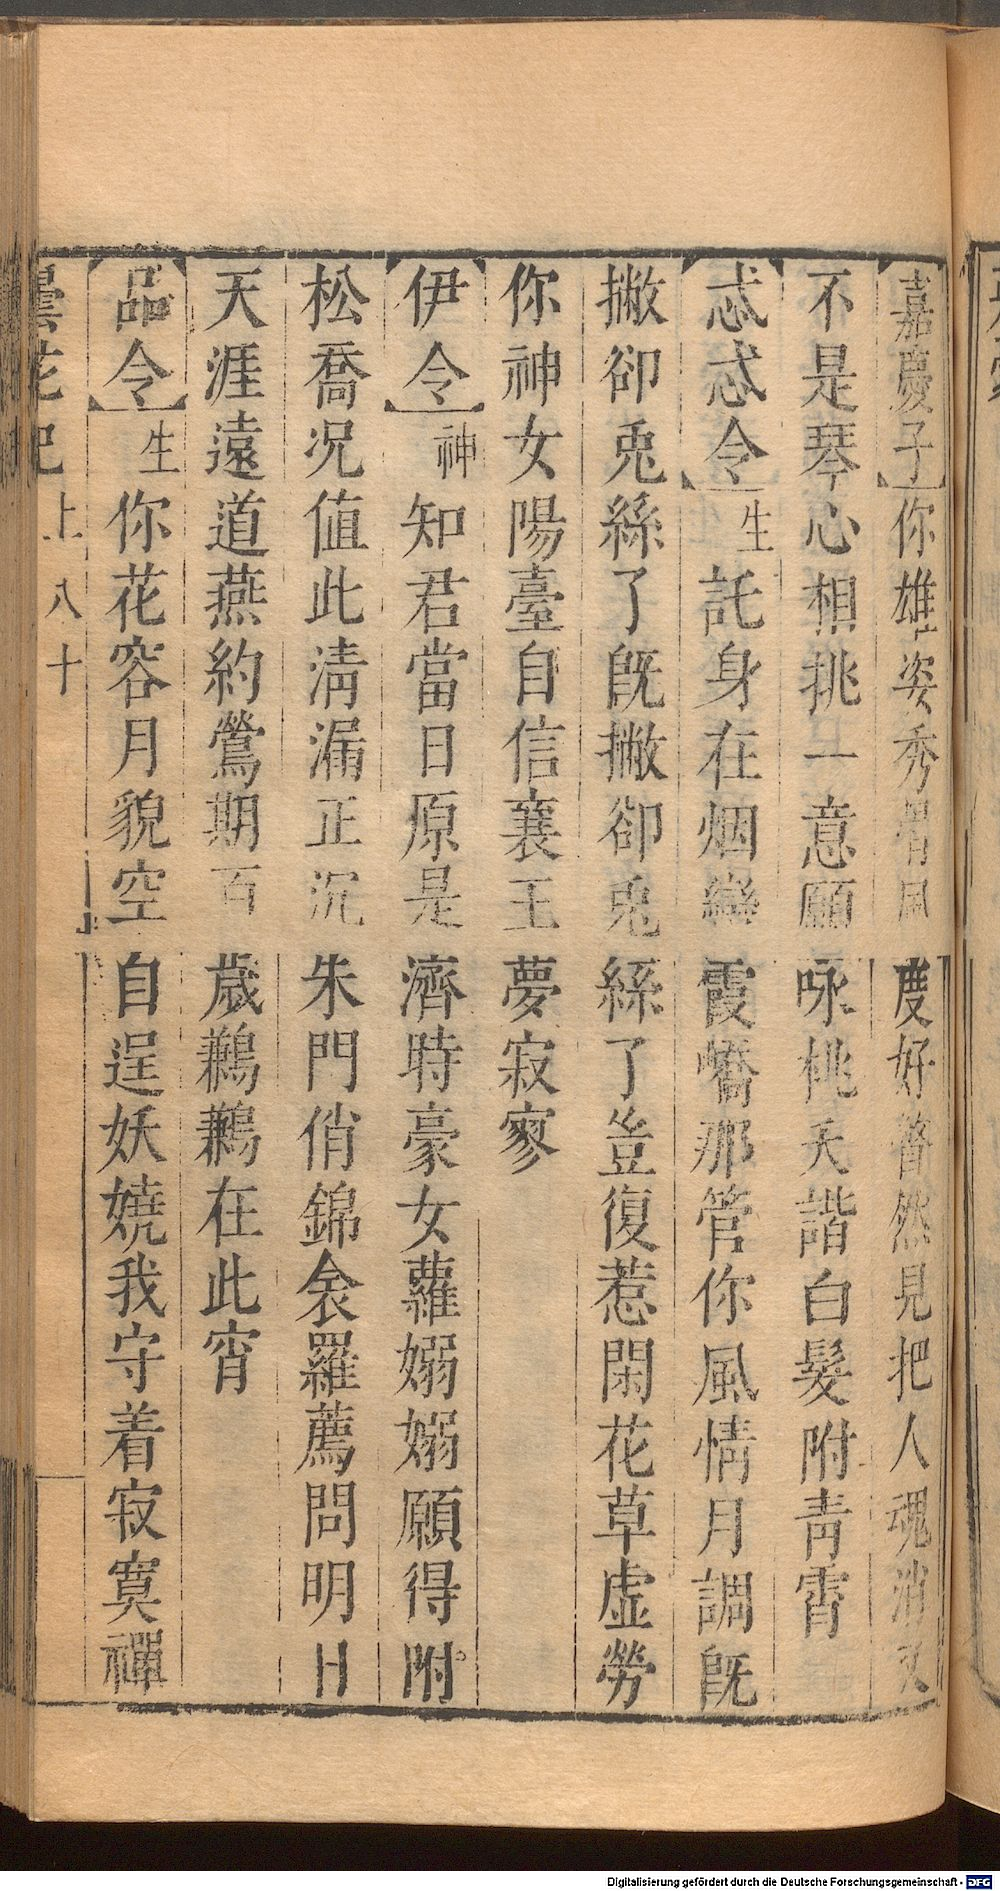 【嘉慶子】你雄姿秀骨風度好瞥然見把人魂消又
不是琴心相挑一意願咏桃夭諧白髮附青霄
【忒忒令】生託身在烟巒霞嶠那管你風情月調既
撇卻兎絲了既撇卻兎絲了豈復惹閑花草虛勞
你神女陽臺自信襄王夢寂寥
【伊令】神知君當日原是濟時豪女蘿嫋嫋願得附
松喬况値此淸漏正沉朱門俏錦衾羅薦問明日
天涯遠道燕約鶯期百歲鶼鶼在此宵
【品令】生你花容月貌空自逞妖嬈我守着寂寞禪
曇花記 上 八十
Digitalisierung gefördert durch die Deutsche Forschungsgemeinschaft - DFG